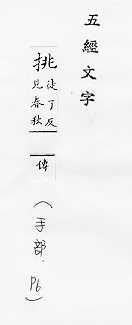 五經文字
挑 徒了反
見春秋
傳
(手部. P6)